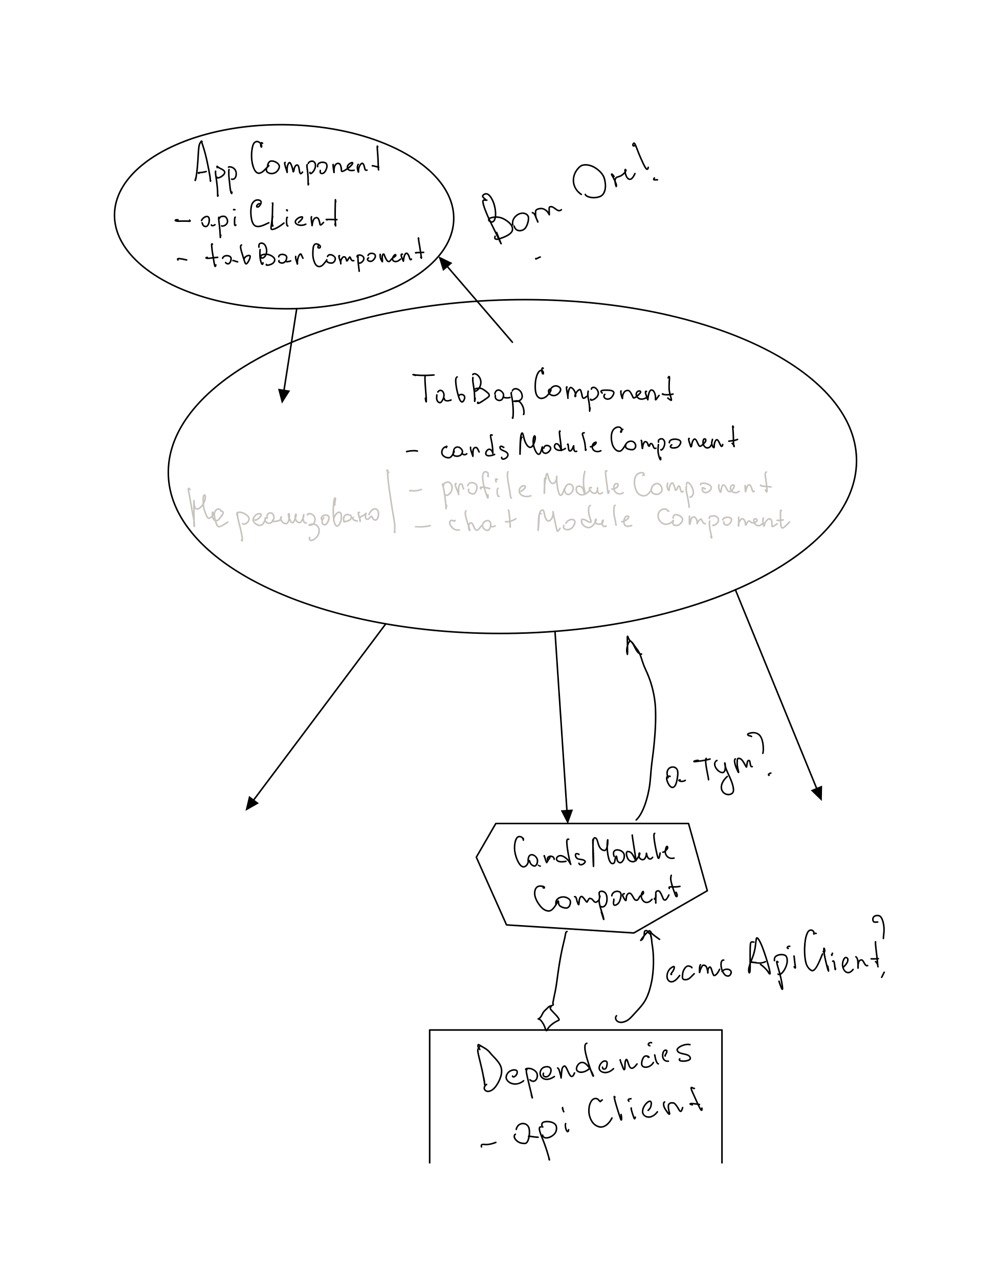 App Component
- api Client
- tabBar Component
Вот Он!
TabBar Component
- cardsModule Component
Не реализовано
- profile Module Component
- chat Module Component
а тут?
CardsModule
Component
есть ApiClient?
Dependencies
- api Client